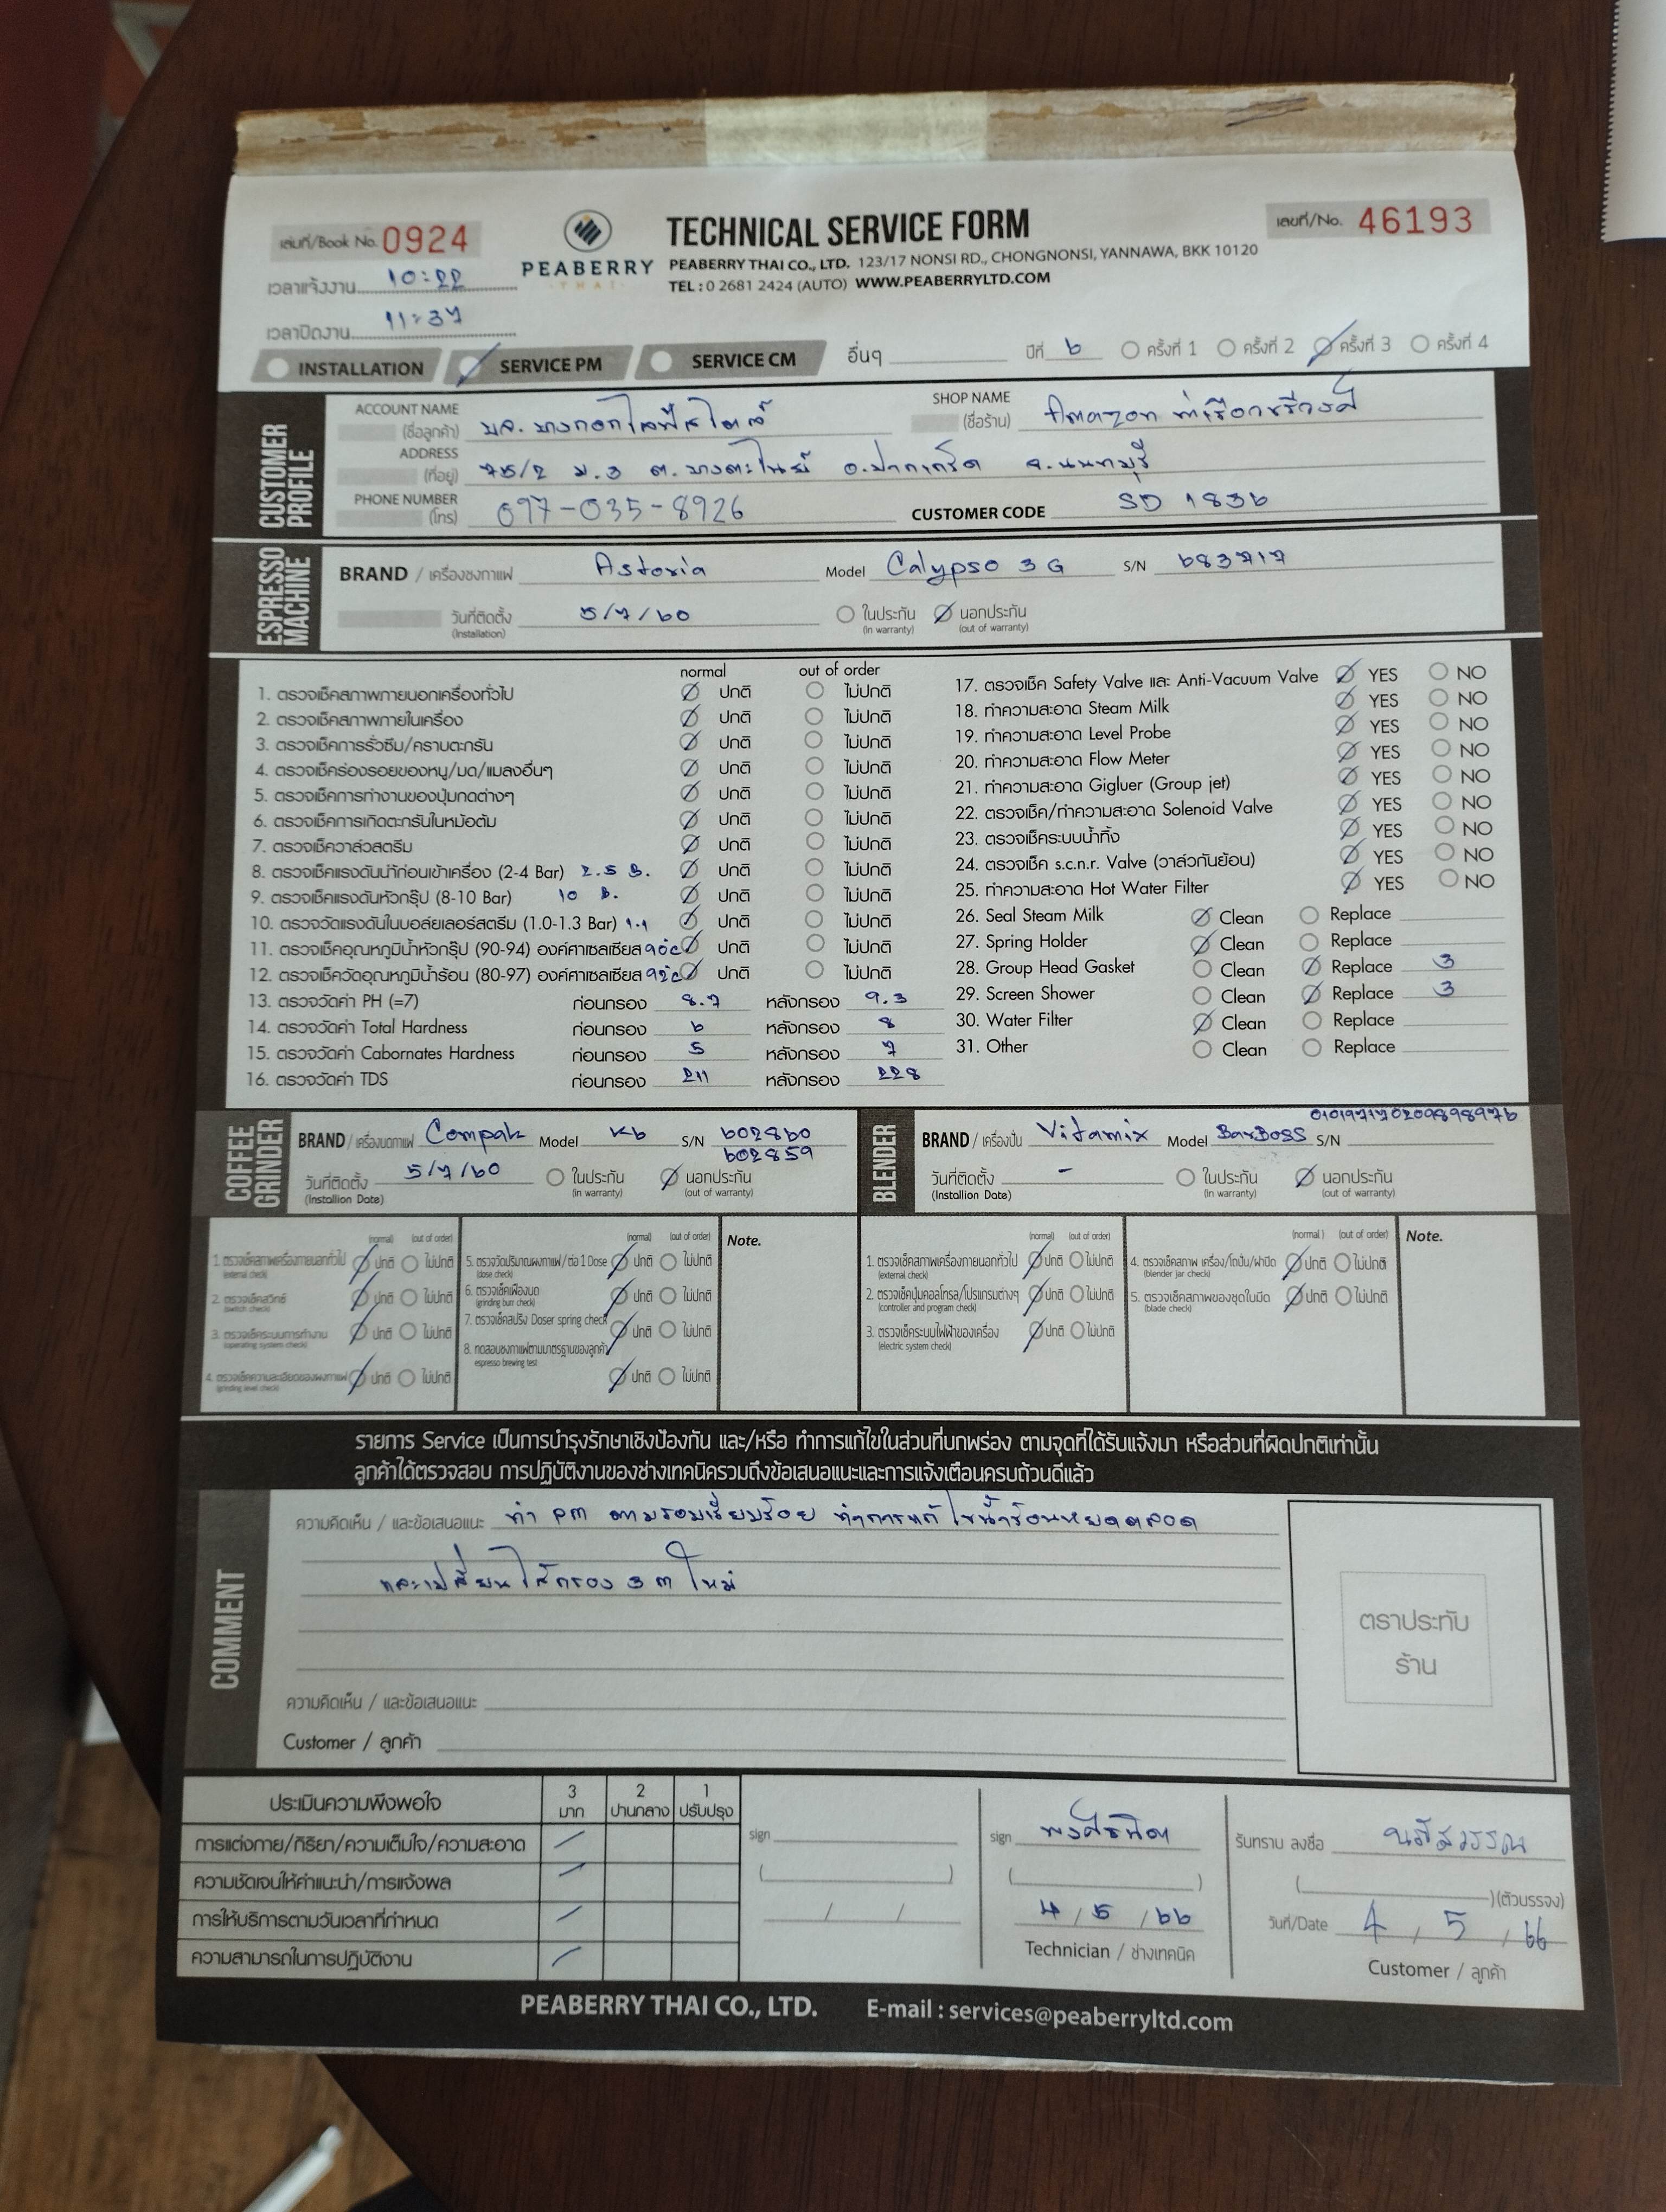 เล่มที่/Book No. 0924
TECHNICAL SERVICE FORM
เลขที่/No. 46193
PEABERRY
THAI
PEABERRY THAI CO., LTD. 123/17 NONSI RD., CHONGNONSI, YANNAWA, BKK 10120
TEL : 0 2681 2424 (AUTO) WWW.PEABERRYLTD.COM
เวลาแจ้งงาน 10:22
เวลาปิดงาน 11:37
INSTALLATION SERVICE PM SERVICE CM อื่นๆ ปีที่ 6 ครั้งที่ 1 ครั้งที่ 2 ครั้งที่ 3 ครั้งที่ 4
CUSTOMER PROFILE
ACCOUNT NAME (ชื่อลูกค้า) บจ. บางกอกไลฟ์สไตล์ SHOP NAME (ชื่อร้าน) Amazon
ADDRESS (ที่อยู่) 75/2 ม.3 ต.บางตะไนย์ อ.ปากเกร็ด จ.นนทบุรี
PHONE NUMBER (โทร) 097-035-8926 CUSTOMER CODE SD 1836
ESPRESSO MACHINE
BRAND / เครื่องชงกาแฟ Astoria Model Calypso 3 G S/N 683717
วันที่ติดตั้ง (Installation) 5/7/60 ในประกัน (in warranty) นอกประกัน (out of warranty)
normal out of order
1. ตรวจเช็คสภาพภายนอกเครื่องทั่วไป ปกติ ไม่ปกติ
2. ตรวจเช็คสภาพภายในเครื่อง ปกติ ไม่ปกติ
3. ตรวจเช็คการรั่วซึม/คราบตะกรัน ปกติ ไม่ปกติ
4. ตรวจเช็คร่องรอยของหนู/มด/แมลงอื่นๆ ปกติ ไม่ปกติ
5. ตรวจเช็คการทำงานของปุ่มกดต่างๆ ปกติ ไม่ปกติ
6. ตรวจเช็คการเกิดตะกรันในหม้อต้ม ปกติ ไม่ปกติ
7. ตรวจเช็ควาล์วสตรีม ปกติ ไม่ปกติ
8. ตรวจเช็คแรงดันน้ำก่อนเข้าเครื่อง (2-4 Bar) 2.5 B. ปกติ ไม่ปกติ
9. ตรวจเช็คแรงดันหัวกรุ๊ป (8-10 Bar) 10 B. ปกติ ไม่ปกติ
10. ตรวจวัดแรงดันในบอล์ยเลอร์สตรีม (1.0-1.3 Bar) 1.1 ปกติ ไม่ปกติ
11. ตรวจเช็คอุณหภูมิน้ำหัวกรุ๊ป (90-94) องศ์ศาเซลเซียส 90°c ปกติ ไม่ปกติ
12. ตรวจเช็ควัดอุณหภูมิน้ำร้อน (80-97) องศ์ศาเซลเซียส 92°c ปกติ ไม่ปกติ
13. ตรวจวัดค่า PH (=7) ก่อนกรอง 8.7 หลังกรอง 9.3
14. ตรวจวัดค่า Total Hardness ก่อนกรอง 6 หลังกรอง 8
15. ตรวจวัดค่า Cabornates Hardness ก่อนกรอง 5 หลังกรอง 7
16. ตรวจวัดค่า TDS ก่อนกรอง 211 หลังกรอง 228
17. ตรวจเช็ค Safety Valve และ Anti-Vacuum Valve YES NO
18. ทำความสะอาด Steam Milk YES NO
19. ทำความสะอาด Level Probe YES NO
20. ทำความสะอาด Flow Meter YES NO
21. ทำความสะอาด Gigluer (Group jet) YES NO
22. ตรวจเช็ค/ทำความสะอาด Solenoid Valve YES NO
23. ตรวจเช็คระบบน้ำทิ้ง YES NO
24. ตรวจเช็ค s.c.n.r. Valve (วาล์วกันย้อน) YES NO
25. ทำความสะอาด Hot Water Filter YES NO
26. Seal Steam Milk Clean Replace
27. Spring Holder Clean Replace
28. Group Head Gasket Clean Replace 3
29. Screen Shower Clean Replace 3
30. Water Filter Clean Replace
31. Other Clean Replace
COFFEE GRINDER
BRAND / เครื่องบดกาแฟ Compak Model K6 S/N 602860
602859
วันที่ติดตั้ง (Installion Date) 5/7/60 ในประกัน (in warranty) นอกประกัน (out of warranty)
BLENDER
BRAND / เครื่องปั่น Vitamix Model BarBoss S/N
วันที่ติดตั้ง (Installion Date) - ในประกัน (in warranty) นอกประกัน (out of warranty)
(normal) (out of order)
1. ตรวจเช็คสภาพเครื่องภายนอกทั่วไป (external check) ปกติ ไม่ปกติ
2. ตรวจเช็คสวิทซ์ (switch check) ปกติ ไม่ปกติ
3. ตรวจเช็คระบบการทำงาน (operating system check) ปกติ ไม่ปกติ
4. ตรวจเช็คความละเอียดของผงกาแฟ (grinding level check) ปกติ ไม่ปกติ
(normal) (out of order)
5. ตรวจวัดปริมาณผงกาแฟ/ต่อ 1 Dose (dose check) ปกติ ไม่ปกติ
6. ตรวจเช็คเฟืองบด (grinding burr check) ปกติ ไม่ปกติ
7. ตรวจเช็คสปริง Doser spring check ปกติ ไม่ปกติ
8. ทดสอบชงกาแฟตามมาตรฐานของลูกค้า espresso brewing test ปกติ ไม่ปกติ
Note.
(normal) (out of order)
1. ตรวจเช็คสภาพเครื่องภายนอกทั่วไป (external check) ปกติ ไม่ปกติ
2. ตรวจเช็คปุ่มคอลโทรล/โปรแกรมต่างๆ (controller and program check) ปกติ ไม่ปกติ
3. ตรวจเช็คระบบไฟฟ้าของเครื่อง (electric system check) ปกติ ไม่ปกติ
(normal) (out of order)
4. ตรวจเช็คสภาพ เครื่อง/โถปั่น/ฝาปิด (blender jar check) ปกติ ไม่ปกติ
5. ตรวจเช็คสภาพของชุดใบมีด (blade check) ปกติ ไม่ปกติ
Note.
รายการ Service เป็นการบำรุงรักษาเชิงป้องกัน และ/หรือ ทำการแก้ไขในส่วนที่บกพร่อง ตามจุดที่ได้รับแจ้งมา หรือส่วนที่ผิดปกติเท่านั้น
ลูกค้าได้ตรวจสอบ การปฏิบัติงานของช่างเทคนิครวมถึงข้อเสนอแนะและการแจ้งเตือนครบถ้วนดีแล้ว
COMMENT
ความคิดเห็น / และข้อเสนอแนะ ทำ PM ตามรอบเรียบร้อย ทำการแก้ไขน้ำร้อนหยดตลอด
และเปลี่ยนไส้กรอง 3 m ใหม่
ตราประทับ
ร้าน
ความคิดเห็น / และข้อเสนอแนะ
Customer / ลูกค้า
ประเมินความพึงพอใจ 3 มาก 2 ปานกลาง 1 ปรับปรุง
การแต่งกาย/กิริยา/ความเต็มใจ/ความสะอาด
ความชัดเจนให้คำแนะนำ/การแจ้งผล
การให้บริการตามวันเวลาที่กำหนด
ความสามารถในการปฏิบัติงาน
sign
sign
4 / 5 / 66
Technician / ช่างเทคนิค
รับทราบ ลงชื่อ
(ตัวบรรจง)
วันที่/Date 4 / 5 / 66
Customer / ลูกค้า
PEABERRY THAI CO., LTD. E-mail : services@peaberryltd.com